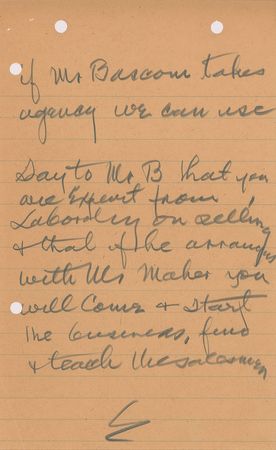 if Mr Bascom takes
agency we can use
Say to Mr B that you
are Expert from
Laboratory on selling
& that if he arranges
with Mr Maher you
will Come & start
the business, find
& teach the salesmen
E